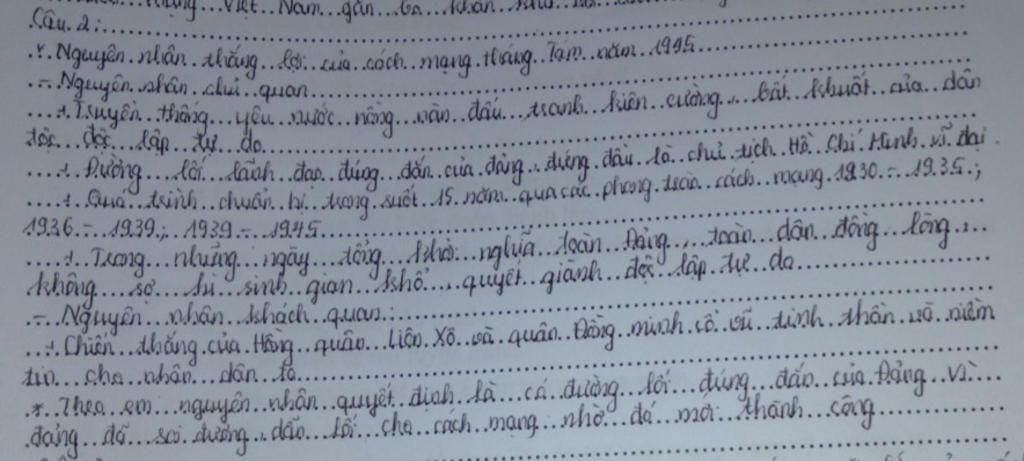 Việt Nam gắn bó khăn
Câu 2:
*. Nguyên nhân thắng lợi của cách mạng tháng Tám năm 1945
- Nguyên nhân chủ quan
+ Truyền thống yêu nước nồng nàn đấu tranh kiên cường, bất khuất của dân
tộc độc lập tự do
+ Đường lối lãnh đạo đúng đắn của đảng, đứng đầu là chủ tịch Hồ Chí Minh vĩ đại.
+ Quá trình chuẩn bị trong suốt 15 năm qua các phong trào cách mạng 1930 - 1935;
1936 - 1939; 1939 - 1945
+ Trong những ngày tổng khởi nghĩa toàn Đảng, toàn dân đồng lòng,
không sợ hi sinh gian khổ, quyết giành độc lập tự do
- Nguyên nhân khách quan:
+ Chiến thắng của Hồng quân Liên Xô và quân Đồng minh cổ vũ tinh thần và niềm
tin cho nhân dân ta
* Theo em nguyên nhân quyết định là có đường lối đúng đắn của Đảng vì
đảng đã soi đường, dẫn lối cho cách mạng nhờ đó mới thành công